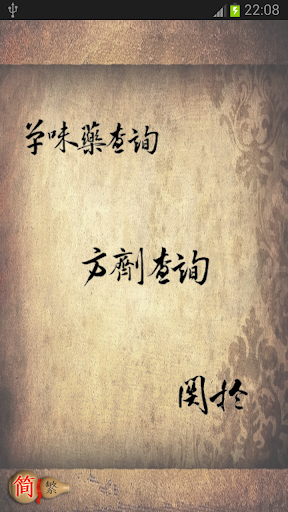 22:08
单味藥查詢
方劑查詢
関於
简 繁